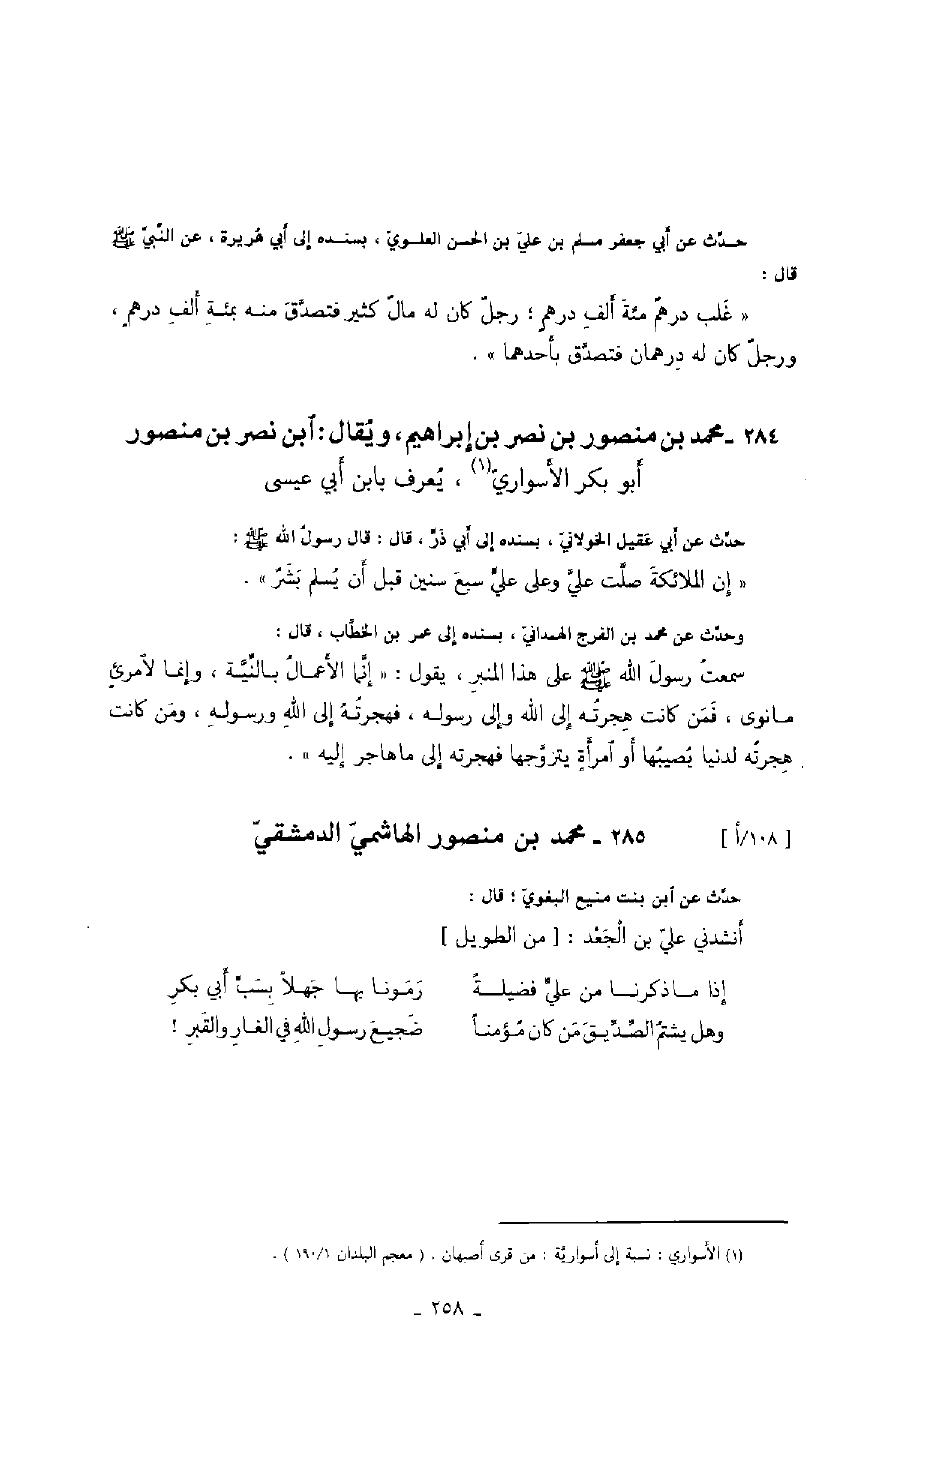 حدّث عن أبي جعفر مسلم بن عليّ بن الحسن العلويّ ، بسنده إلى أبي هُريرة ، عن النَّبيّ ﷺ
قال :
« غَلب درهمٌ مئةَ ألفِ درهمٍ ؛ رجلٌ كان له مالٌ كثير فتصدَّقَ منه بمئةِ ألفِ درهمٍ ،
ورجلٌ كان له دِرهمان فتصدَّق بأحدهما » .
٢٨٤ ـ محمد بن منصور بن نصر بن إبراهيم ، ويُقال : ٱبن نصر بن منصور
أبو بكر الأسواريّ(١) ، يُعرف بابن أبي عيسى
حدّث عن أبي عَقيل الخولانيّ ، بسنده إلى أبي ذَرّ ، قال : قال رسولُ الله ﷺ :
« إن الملائكةَ صلَّت عليَّ وعلى عليٍّ سبعَ سنين قبل أن يُسلم بَشَرٌ » .
وحدّث عن محمد بن الفرج الهمدانيّ ، بسنده إلى عمر بن الخطَّاب ، قال :
سمعتُ رسولَ الله ﷺ على هذا المنبرِ ، يقول : « إنَّما الأعمالُ بالنِّيَّة ، وإنما لاٌمرئٍ
مانوى ، فَمَن كانت هِجرتُه إلى الله وإلى رسوله ، فهجرتُهُ إلى اللهِ ورسولهِ ، ومَن كانت
هِجرتُه لدنيا يُصيبُها أو ٱمرأةٍ يتزوَّجها فهجرته إلى ماهاجر إليه » .
[ ١٠٨/أ ] ٢٨٥ ـ محمد بن منصور الهاشميّ الدمشقيّ
حدّث عن ٱبن بنت منيع البغويّ ؛ قال :
أنشدني عليّ بن الْجَعْد : [ من الطويل ]
إذا ماذكرنا من عليٍّ فضيلةً رَمَونا بها جَهلاً بِسَبِّ أبي بكرِ
وهل يشتمُ الصِّدِّيقَ مَن كان مُؤمناً ضَجيعَ رسولِ اللهِ في الغارِ والقَبرِ !
(١) الأسواري : نسبة إلى أسواريَّة : من قرى أصبهان . ( معجم البلدان ١٩٠/١ ) .
ـ ٢٥٨ ـ